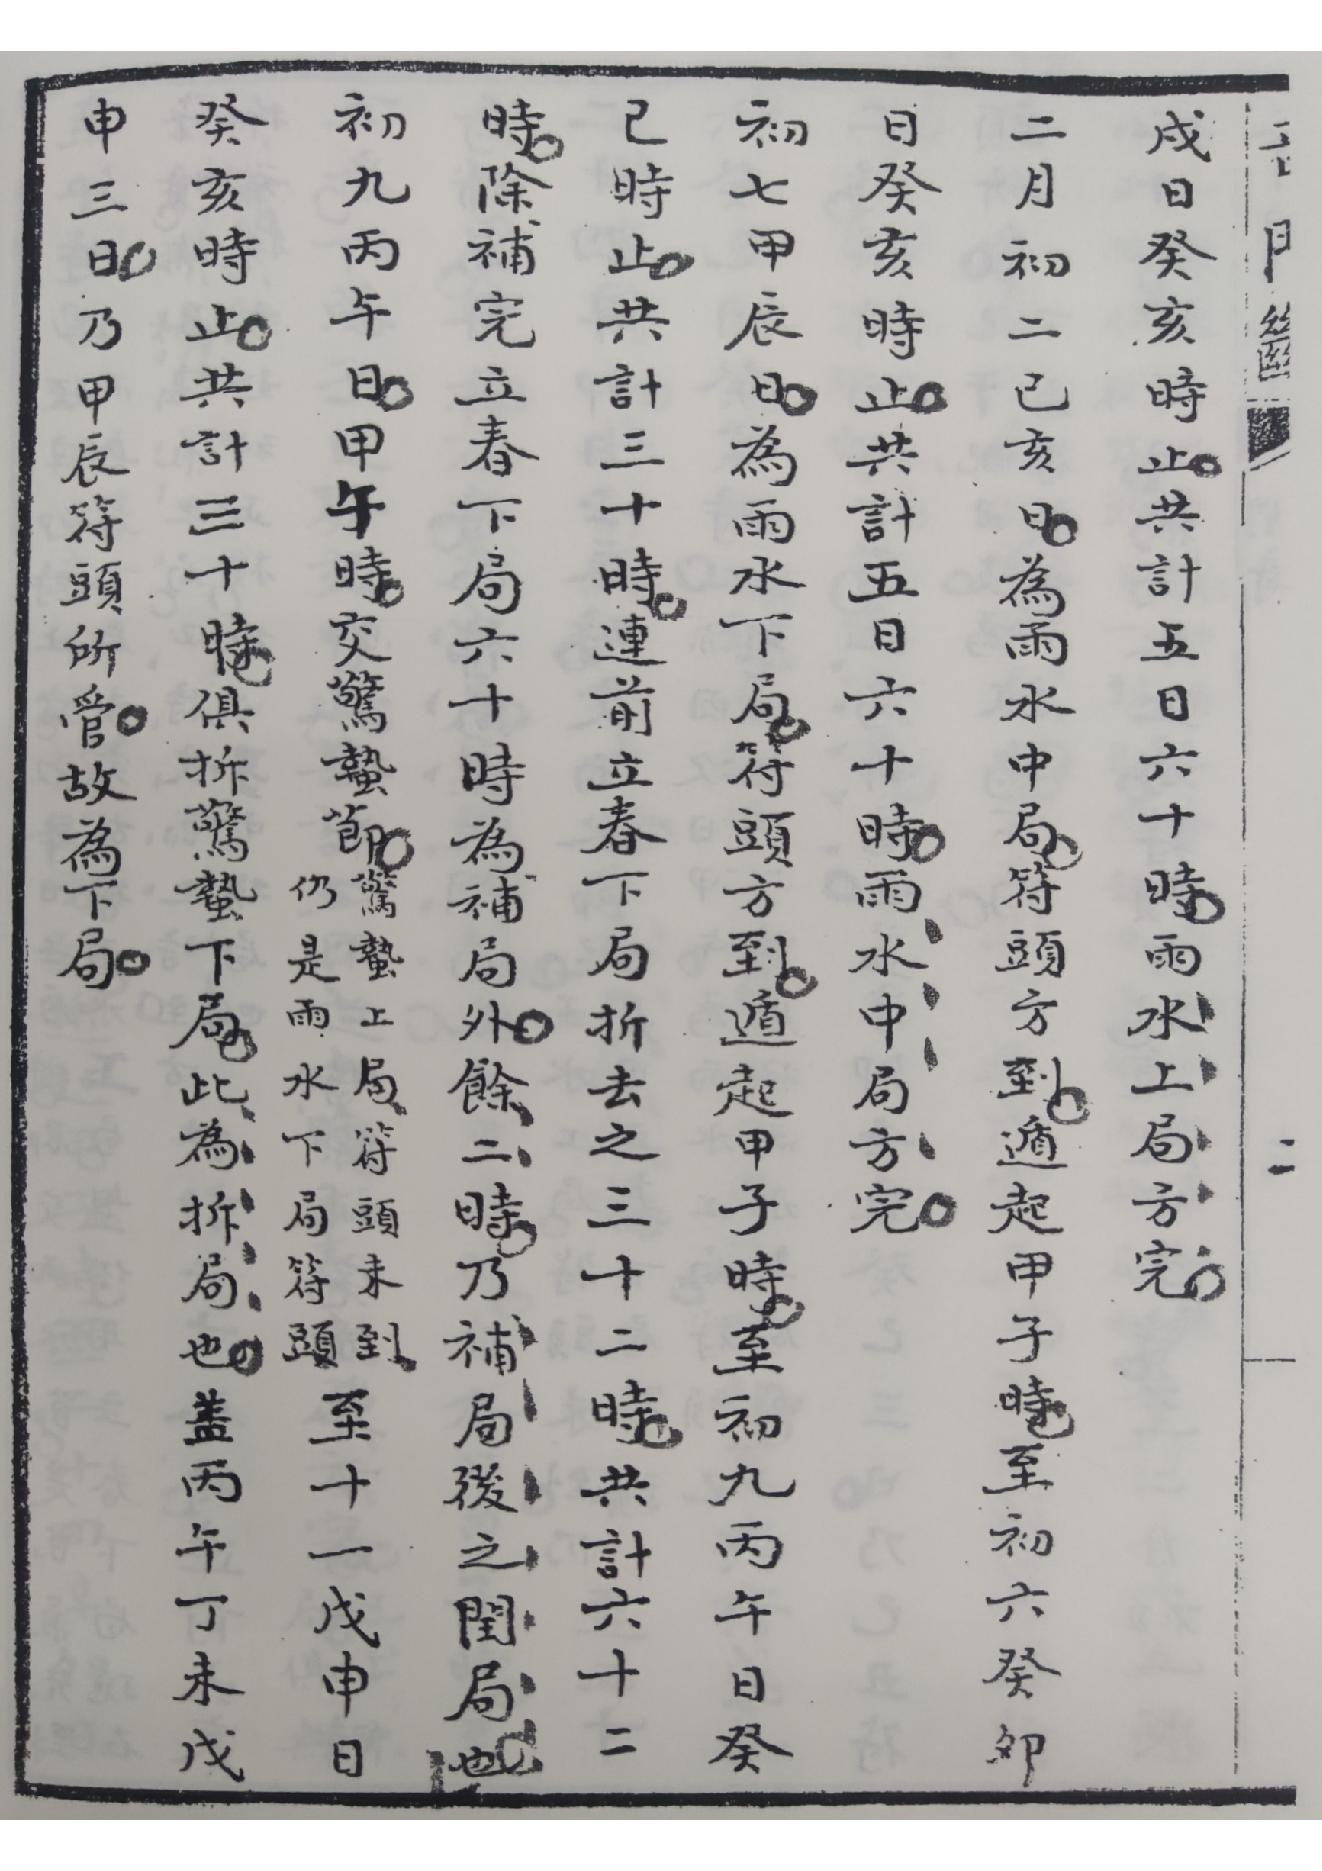 戌日癸亥時止共計五日六十時雨水上局方完
二月初二己亥日為雨水中局符頭方到遁起甲子時至初六癸卯
日癸亥時止共計五日六十時雨水中局方完
初七甲辰日為雨水下局符頭方到遁起甲子時至初九丙午日癸
巳時止共計三十時連前立春下局折去之三十二時共計六十二
時除補完立春下局六十時為補局外餘二時乃補局後之閏局也
初九丙午日甲午時交驚蟄節
驚蟄上局符頭未到
仍是雨水下局符頭
至十一戊申日
癸亥時止共計三十時俱拆驚蟄下局此為拆局也盖丙午丁未戊
申三日乃甲辰符頭所管故為下局
門
二